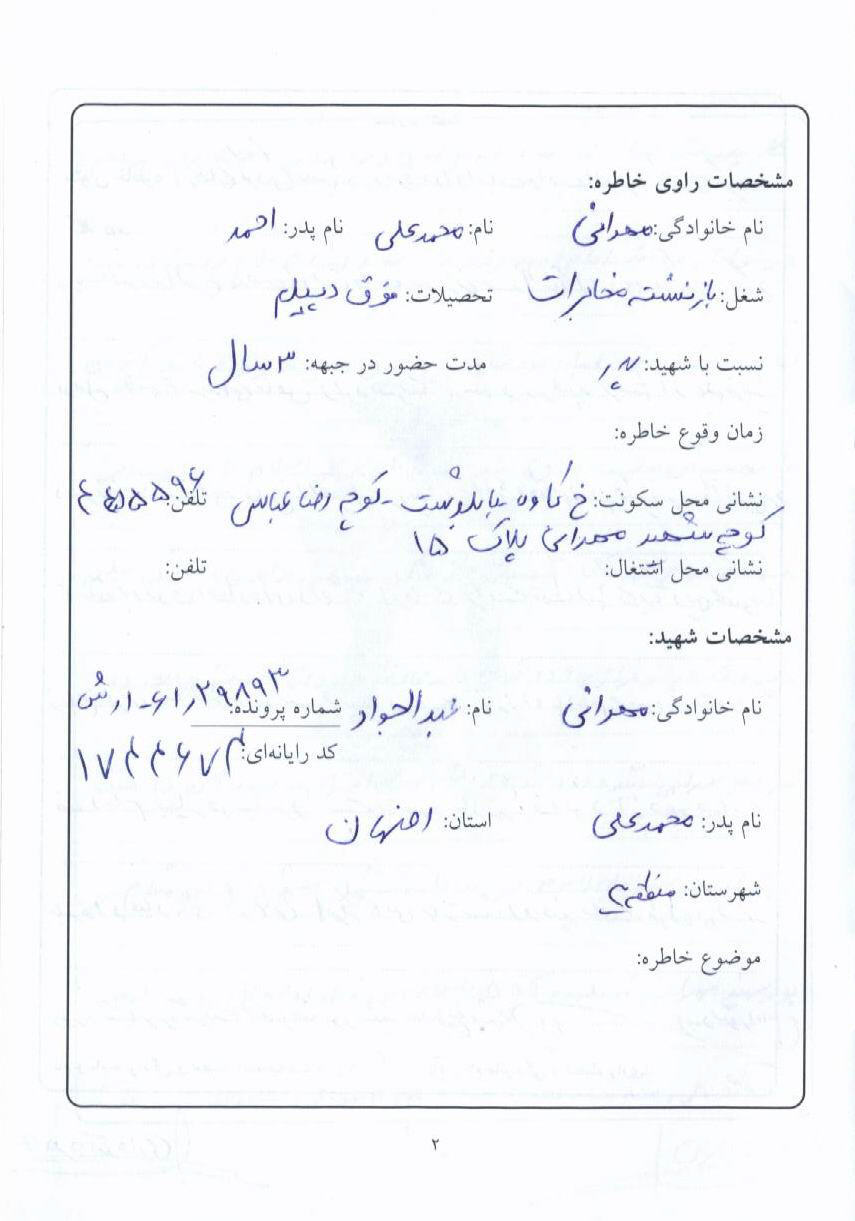 مشخصات راوی خاطره:
نام خانوادگی: مهرانی نام: محمدعلی نام پدر: احمد
شغل: بازنشته مخابرات تحصیلات: فوق دیپلم
نسبت با شهید: پدر مدت حضور در جبهه: ۳ سال
زمان وقوع خاطره:
نشانی محل سکونت: خ کاوه - کوچه رضا عباسی تلفن:
کوچه شهید مهرانی پلاک ۱۵
نشانی محل اشتغال: تلفن:
مشخصات شهید:
نام خانوادگی: مهرانی نام: عبدالجواد شماره پرونده: ۲۹۸۹۳
کد رایانه‌ای:
نام پدر: محمدعلی استان: اصفهان
شهرستان: منطقه
موضوع خاطره:
۲